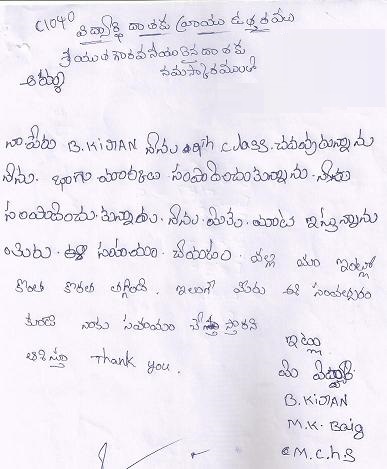 C1040
విద్యార్థి దాతకు వ్రాయు ఉత్తరము
శ్రీయుత గౌరవనీయులైన దాతకు
నమస్కారములండి
నా పేరు B.KIJIAN నేను 9th class. చదువుతున్నాను
నేను. బాగా మార్కులు సంపాదించుకున్నాను.
నేను. మీకు. మాట ఇస్తున్నాను
మీరు. ఈ సహాయం. చేయడం. వల్ల మా ఇంట్లో
కొంత కొరత తగ్గింది. ఇలాగే మీరు ఈ సంవత్సరం
కూడా నాకు సహాయం చేస్తారని
ఆశిస్తూ Thank you.
ఇట్లు
మీ విద్యార్థి
B.KIJIAN
M.K. Baig
M.C.h.S